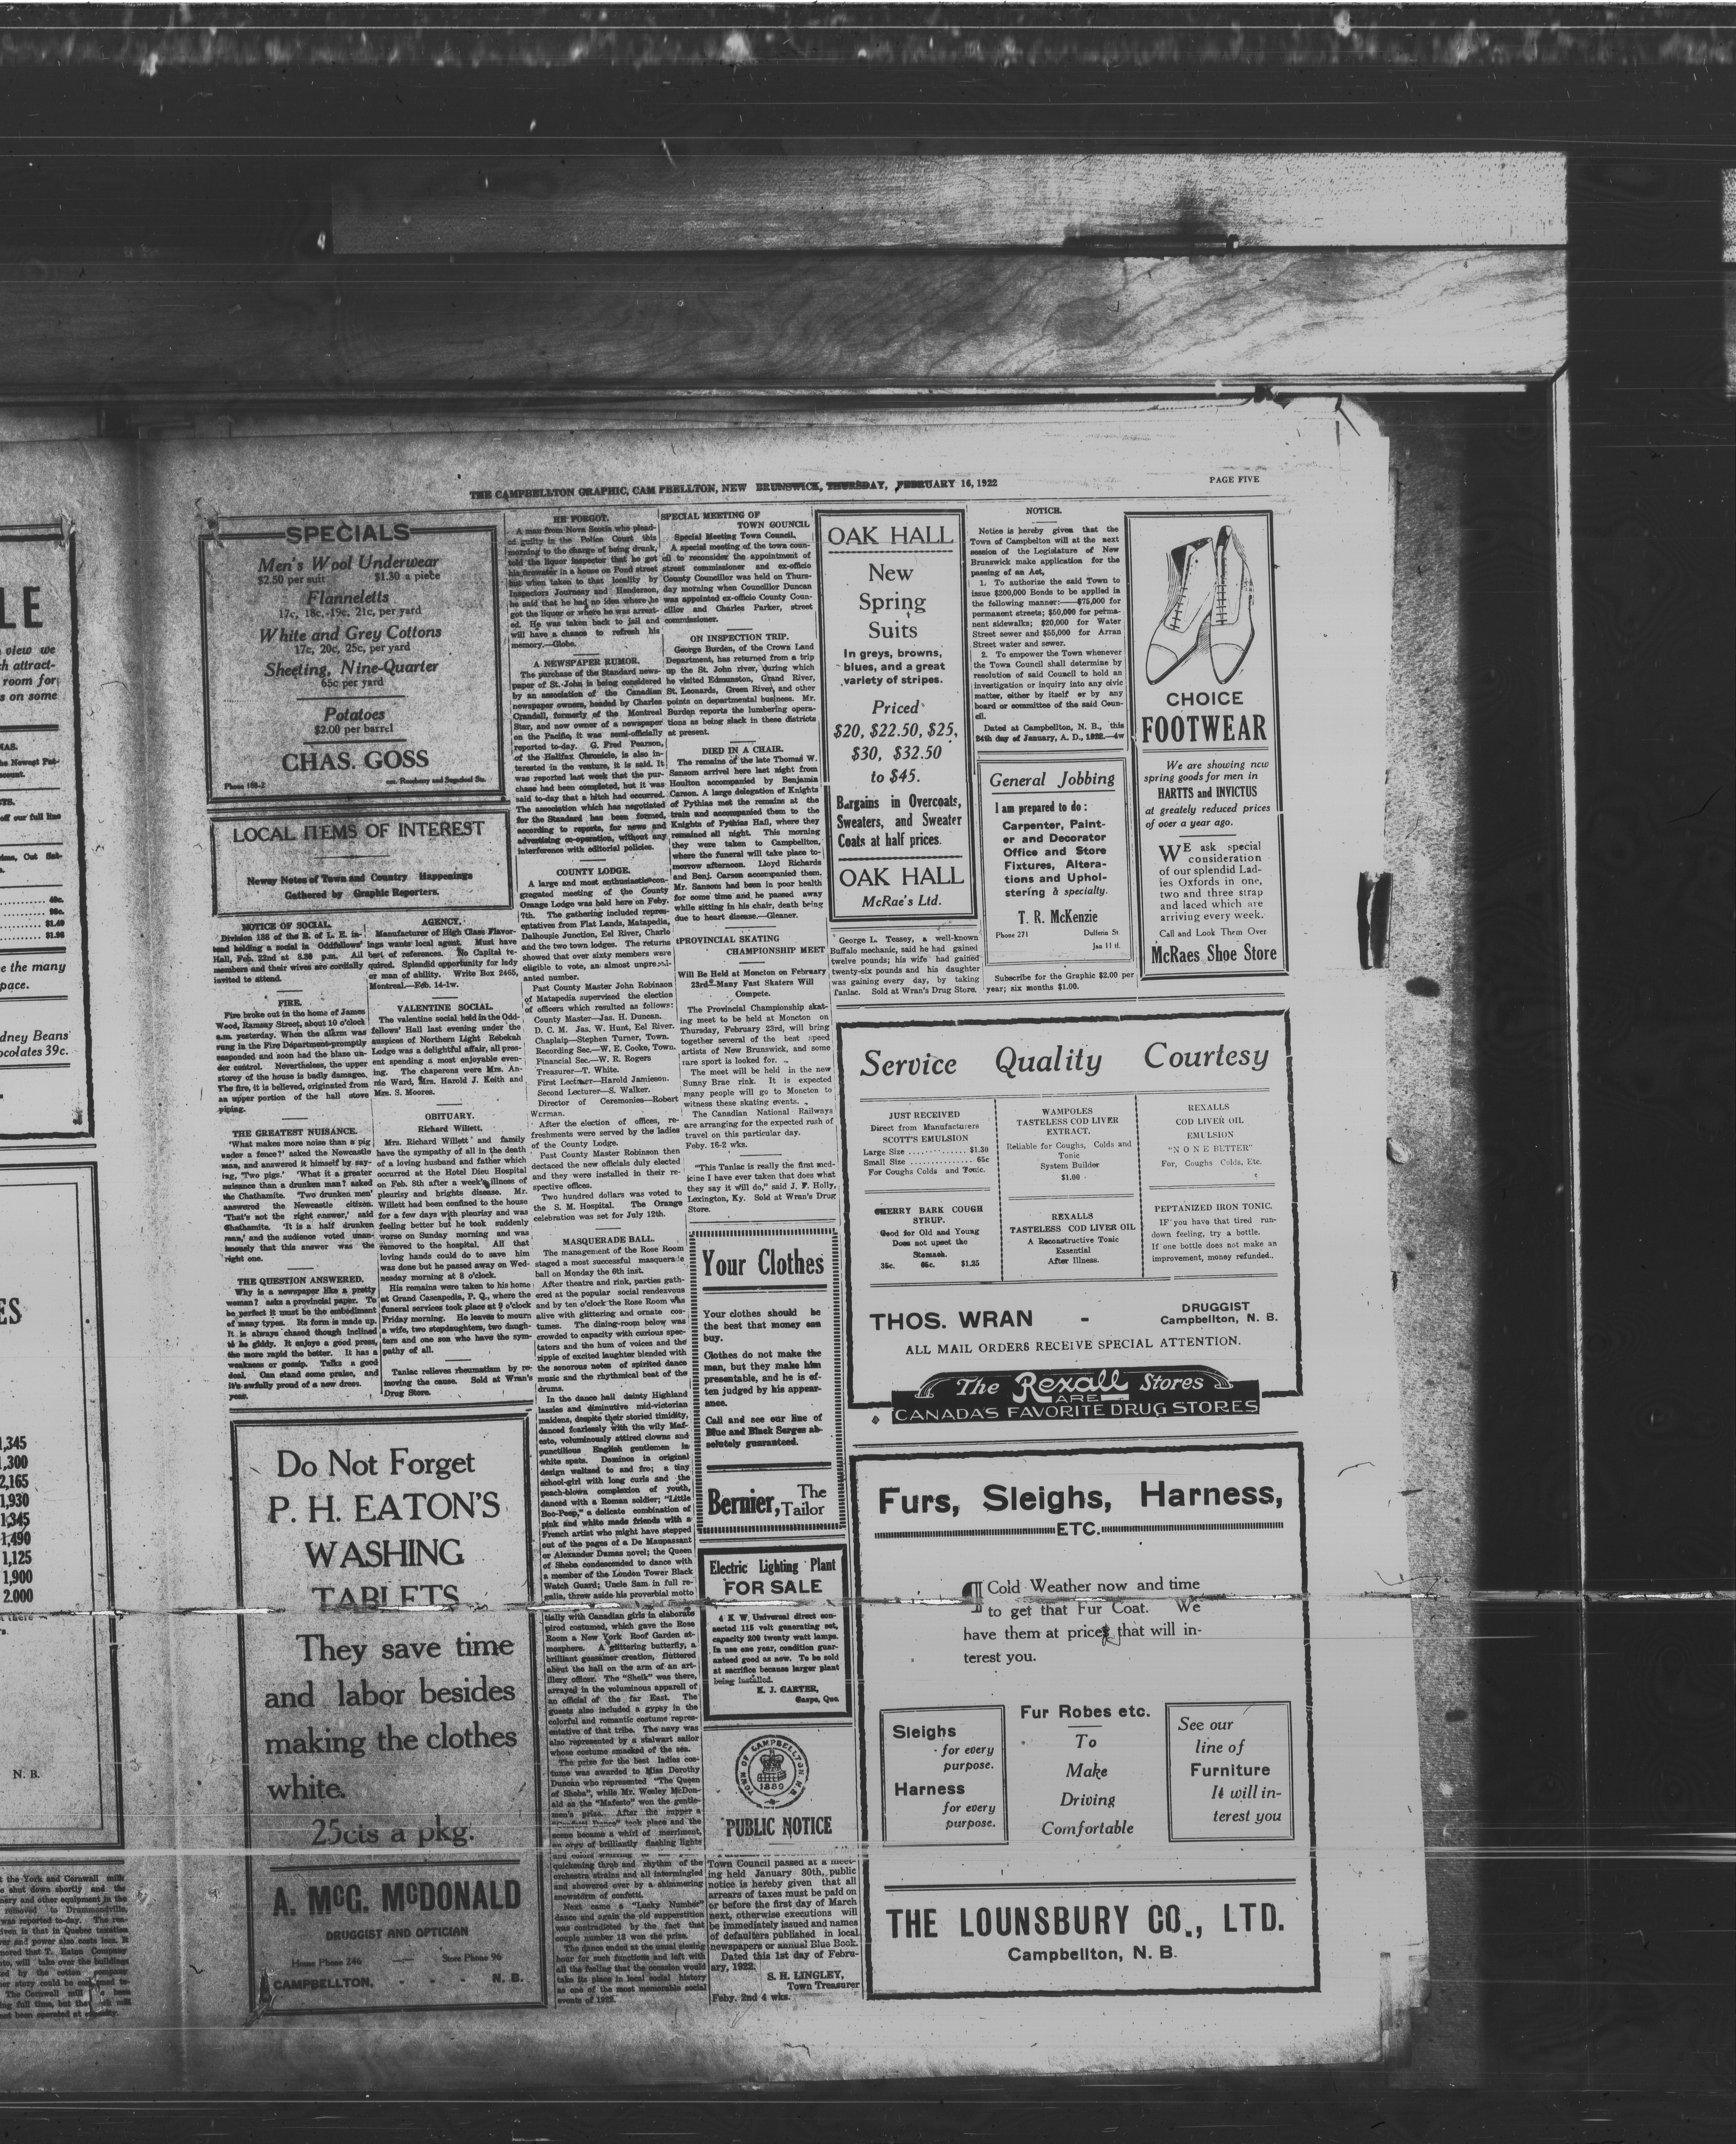 THE CAMPBELLTON GRAPHIC, CAMPBELLTON, NEW BRUNSWICK, THURSDAY, FEBRUARY 16, 1922
PAGE FIVE
SPECIALS
Men's Wool Underwear
$2.50 per suit $1.30 a piece
Flanneletts
17c, 18c, 19c, 21c, per yard
White and Grey Cottons
17c, 20c, 25c, per yard
Sheeting, Nine-Quarter
65c per yard
Potatoes
$2.00 per barrel
CHAS. GOSS
LOCAL ITEMS OF INTEREST
Newsy Notes of Town and Country Happenings
Gathered by Graphic Reporters.
NOTICE OF SOCIAL.
Division 138 of the B. of L. E. in-
tend holding a social in Oddfellows'
Hall, Feb. 22nd at 8.30 p.m. All
members and their wives are cordially
invited to attend.
FIRE.
Fire broke out in the home of James
Wood, Ramsay Street, about 10 o'clock
a.m. yesterday. When the alarm was
rung in the Fire Department promptly
responded and soon had the blaze un-
der control. Nevertheless, the upper
storey of the house is badly damaged.
The fire, it is believed, originated from
an upper portion of the hall stove
piping.
THE GREATEST NUISANCE.
'What makes more noise than a pig
under a fence?' asked the Newcastle
man, and answered it himself by say-
ing, 'Two pigs.' 'What is a greater
nuisance than a drunken man? asked
the Chathamite. 'Two drunken men'
answered the Newcastle citizen.
'That's not the right answer,' said
Chathamite. 'It is a half drunken
man,' and the audience voted unan-
imously that this answer was the
right one.
THE QUESTION ANSWERED.
Why is a newspaper like a pretty
woman? asks a provincial paper. To
be perfect it must be the embodiment
of many types. Its form is made up.
It is always chased though inclined
to be giddy. It enjoys a good press,
the more rapid the better. It has a
weakness or gossip. Talks a good
deal. Can stand some praise, and
it's awfully proud of a new dress.
AGENCY.
Manufacturer of High Class Flavor-
ings wants local agent. Must have
best of references. No Capital re-
quired. Splendid opportunity for lady
or man of ability. Write Box 2465,
Montreal.—Feb. 14-1w.
VALENTINE SOCIAL.
The valentine social held in the Odd-
fellows' Hall last evening under the
auspices of Northern Light Rebekah
Lodge was a delightful affair, all pres-
ent spending a most enjoyable even-
ing. The chaperons were Mrs. An-
nie Ward, Mrs. Harold J. Keith and
Mrs. S. Moores.
OBITUARY.
Richard Willett.
Mrs. Richard Willett and family
have the sympathy of all in the death
of a loving husband and father which
occurred at the Hotel Dieu Hospital
on Feb. 8th after a week's illness of
pleurisy and brights disease. Mr.
Willett had been confined to the house
for a few days with pleurisy and was
feeling better but he took suddenly
worse on Sunday morning and was
removed to the hospital. All that
loving hands could do to save him
was done but he passed away on Wed-
nesday morning at 8 o'clock.
His remains were taken to his home
at Grand Cascapedia, P. Q., where the
funeral services took place at 9 o'clock
Friday morning. He leaves to mourn
a wife, two stepdaughters, two daugh-
ters and one son who have the sym-
pathy of all.
Tanlac relieves rheumatism by re-
moving the cause. Sold at Wran's
Drug Store.
Do Not Forget
P. H. EATON'S
WASHING
TABLETS
They save time
and labor besides
making the clothes
white.
25cts a pkg.
A. McG. McDONALD
DRUGGIST AND OPTICIAN
House Phone 246 — Store Phone 96
CAMPBELLTON, - - N. B.
HE FORGOT.
A man from Nova Scotia who plead-
ed guilty in the Police Court this
morning to the charge of being drunk,
told the liquor inspector that he got
his firewater in a house on Pond street
but when taken to that locality by
Inspectors Journeay and Henderson,
he said that he had no idea where he
got the liquor or where he was arrest-
ed. He was taken back to jail and
will have a chance to refresh his
memory.—Globe.
A NEWSPAPER RUMOR.
The purchase of the Standard news-
paper of St. John is being considered
by an association of the Canadian
newspaper owners, headed by Charles
Crandall, formerly of the Montreal
Star, and now owner of a newspaper
on the Pacific, it was semi-officially
reported to-day. G. Fred Pearson,
of the Halifax Chronicle, is also in-
terested in the venture, it is said. It
was reported last week that the pur-
chase had been completed, but it was
said to-day that a hitch had occurred.
The association which has negotiated
for the Standard has been formed,
according to reports, for news and
advertising co-operation, without any
interference with editorial policies.
COUNTY LODGE.
A large and most enthusiastic con-
gregated meeting of the County
Orange Lodge was held here on Feby.
7th. The gathering included repres-
entatives from Flat Lands, Matapedia,
Dalhousie Junction, Eel River, Charlo
and the two town lodges. The returns
showed that over sixty members were
eligible to vote, an almost unpreced-
anted number.
Past County Master John Robinson
of Matapedia supervised the election
of officers which resulted as follows:
County Master—Jas. H. Duncan.
D. C. M. Jas. W. Hunt, Eel River.
Chaplain—Stephen Turner, Town.
Recording Sec.—W. E. Cooke, Town.
Financial Sec.—W. R. Rogers
Treasurer—T. White.
First Lecturer—Harold Jamieson.
Second Lecturer—S. Walker.
Director of Ceremonies—Robert
Worman.
After the election of offices, re-
freshments were served by the ladies
of the County Lodge.
Past County Master Robinson then
dectaced the new officials duly elected
and they were installed in their re-
spective offices.
Two hundred dollars was voted to
the S. M. Hospital. The Orange
celebration was set for July 12th.
MASQUERADE BALL.
The management of the Rose Room
staged a most successful masquerade
ball on Monday the 6th inst.
After theatre and rink, parties gath-
ered at the popular social rendezvous
and by ten o'clock the Rose Room was
alive with glittering and ornate cos-
tumes. The dining-room below was
crowded to capacity with curious spec-
tators and the hum of voices and the
ripple of excited laughter blended with
the sonorous notes of spirited dance
music and the rhythmical beat of the
drums.
In the dance hall dainty Highland
lassies and diminutive mid-victorian
maidens, despite their storied timidity,
danced fearlessly with the wily Maf-
esto, voluminously attired clowns and
punctilious English gentlemen in
white spats. Dominos in original
design waltzed to and fro; a tiny
school-girl with long curls and the
peach-blown complexion of youth,
danced with a Roman soldier; "Little
Boo-Peep," a delicate combination of
pink and white made friends with a
French artist who might have stepped
out of the pages of a De Maupassant
or Alexander Dumas novel; the Queen
of Sheba condescended to dance with
a member of the London Tower Black
Watch Guard; Uncle Sam in full re-
galia, threw aside his proverbial motto
tially with Canadian girls in elaborate
pirod costumed, which gave the Rose
Room a New York Roof Garden at-
mosphere. A glittering butterfly, a
brilliant gossamer creation, fluttered
about the hall on the arm of an art-
illery officer. The "Sheik" was there,
arrayed in the voluminous apparell of
an official of the far East. The
guests also included a gypsy in the
colorful and romantic costume repres-
entative of that tribe. The navy was
also represented by a stalwart sailor
whose costume smacked of the sea.
The prize for the best ladies cos-
tume was awarded to Miss Dorothy
Duncan who represented "The Queen
of Sheba", while Mr. Wesley McDon-
ald as the "Mafesto" won the gentle-
men's prize. After the supper a
took place and the
scene became a whirl of merriment,
an orgy of brilliantly flashing lights
quickening throb and rhythm of the
orchestra strains and all intermingled
and showered over by a shimmering
snowstorm of confetti.
Next came a "Lucky Number"
dance and again the old superstition
was contradicted by the fact that
couple number 13 won the prize.
The dance ended at the usual closing
hour for such functions and left with
all the feeling that the occasion would
take its place in local social history
as one of the most memorable social
events of 1922.
SPECIAL MEETING OF
TOWN COUNCIL
Special Meeting Town Council,
A special meeting of the town coun-
cil to reconsider the appointment of
street commissioner and ex-officio
County Councillor was held on Thurs-
day morning when Councillor Duncan
was appointed ex-officio County Coun-
cillor and Charles Parker, street
commissioner.
ON INSPECTION TRIP.
George Burden, of the Crown Land
Department, has returned from a trip
up the St. John river, during which
he visited Edmunston, Grand River,
St. Leonards, Green River, and other
points on departmental business. Mr.
Burden reports the lumbering opera-
tions as being slack in these districts
at present.
DIED IN A CHAIR.
The remains of the late Thomas W.
Sansom arrival here last night from
Houlton accompanied by Benjamin
Carson. A large delegation of Knights
of Pythias met the remains at the
train and accompanied them to the
Knights of Pythias Hall, where they
remained all night. This morning
they were taken to Campbellton,
where the funeral will take place to-
morrow afternoon. Lloyd Richards
and Benj. Carson accompanied them.
Mr. Sansom had been in poor health
for some time and he passed away
while sitting in his chair, death being
due to heart disease.—Gleaner.
PROVINCIAL SKATING
CHAMPIONSHIP MEET
Will Be Held at Moncton on February
23rd—Many Fast Skaters Will
Compete.
The Provincial Championship skat-
ing meet to be held at Moncton on
Thursday, February 23rd, will bring
together several of the best speed
artists of New Brunswick, and some
rare sport is looked for.
The meet will be held in the new
Sunny Brae rink. It is expected
many people will go to Moncton to
witness these skating events.
The Canadian National Railways
are arranging for the expected rush of
travel on this particular day.
Feby. 16-2 wks.
"This Tanlac is really the first med-
icine I have ever taken that does what
they say it will do," said J. F. Holly,
Lexington, Ky. Sold at Wran's Drug
Store.
Your Clothes
Your clothes should be
the best that money can
buy.
Clothes do not make the
man, but they make him
presentable, and he is of-
ten judged by his appear-
ance.
Call and see our line of
Blue and Black Serges ab-
solutely guaranteed.
Bernier, The
Tailor
Electric Lighting Plant
FOR SALE
4 K W. Universal direct con-
nected 115 volt generating set,
capacity 200 twenty watt lamps.
In use one year, condition guar-
anteed good as new. To be sold
at sacrifice because larger plant
being installed.
K. J. CARTER,
Gaspe, Que
TOWN OF CAMPBELLTON N.B.
1889
PUBLIC NOTICE
Town Council passed at a meet-
ing held January 30th, public
notice is hereby given that all
arrears of taxes must be paid on
or before the first day of March
next, otherwise executions will
be immediately issued and names
of defaulters published in local
newspapers or annual Blue Book.
Dated this 1st day of Febru-
ary, 1922.
S. H. LINGLEY,
Town Treasurer
Feby. 2nd 4 wks.
OAK HALL
New
Spring
Suits
In greys, browns,
blues, and a great
variety of stripes.
Priced
$20, $22.50, $25,
$30, $32.50
to $45.
Bargains in Overcoats,
Sweaters, and Sweater
Coats at half prices.
OAK HALL
McRae's Ltd.
George L. Tessey, a well-known
Buffalo mechanic, said he had gained
twelve pounds; his wife had gained
twenty-six pounds and his daughter
was gaining every day, by taking
Tanlac. Sold at Wran's Drug Store.
NOTICE.
Notice is hereby given that the
Town of Campbelton will at the next
session of the Legislature of New
Brunswick make application for the
passing of an Act,
1. To authorise the said Town to
issue $200,000 Bonds to be applied in
the following manner:—$75,000 for
permanent streets; $50,000 for perma-
nent sidewalks; $20,000 for Water
Street sewer and $55,000 for Arran
Street water and sewer.
2. To empower the Town whenever
the Town Council shall determine by
resolution of said Council to hold an
investigation or inquiry into any civic
matter, either by itself or by any
board or committee of the said Coun-
cil.
Dated at Campbellton, N. B., this
24th day of January, A. D., 1922.—4w
General Jobbing
I am prepared to do:
Carpenter, Paint-
er and Decorator
Office and Store
Fixtures, Altera-
tions and Uphol-
stering a specialty.
T. R. McKenzie
Phone 271 Dufferin St
Jan 11 tf.
Subscribe for the Graphic $2.00 per
year; six months $1.00.
CHOICE
FOOTWEAR
We are showing new
spring goods for men in
HARTTS and INVICTUS
at greately reduced prices
of over a year ago.
WE ask special
consideration
of our splendid Lad-
ies Oxfords in one,
two and three strap
and laced which are
arriving every week.
Call and Look Them Over
McRaes Shoe Store
Service Quality Courtesy
JUST RECEIVED
Direct from Manufacturers
SCOTT'S EMULSION
Large Size $1.30
Small Size 65c
For Coughs Colds and Tonic.
CHERRY BARK COUGH
SYRUP.
Good for Old and Young
Does not upset the
Stomach.
35c. 65c. $1.25
WAMPOLES
TASTELESS COD LIVER
EXTRACT.
Reliable for Coughs, Colds and
Tonic
System Builder
$1.00
REXALLS
TASTELESS COD LIVER OIL
A Reconstructive Tonic
Essential
After Illness.
REXALLS
COD LIVER OIL
EMULSION
"NONE BETTER"
For, Coughs Colds, Etc.
PEPTANIZED IRON TONIC.
IF you have that tired run-
down feeling, try a bottle.
If one bottle does not make an
improvement, money refunded.
THOS. WRAN - DRUGGIST
Campbellton, N. B.
ALL MAIL ORDERS RECEIVE SPECIAL ATTENTION.
The Rexall Stores
ARE
CANADA'S FAVORITE DRUG STORES
Furs, Sleighs, Harness,
ETC.
¶ Cold Weather now and time
to get that Fur Coat. We
have them at prices that will in-
terest you.
Sleighs
for every
purpose.
Harness
for every
purpose.
Fur Robes etc.
To
Make
Driving
Comfortable
See our
line of
Furniture
It will in-
terest you
THE LOUNSBURY CO., LTD.
Campbellton, N. B.